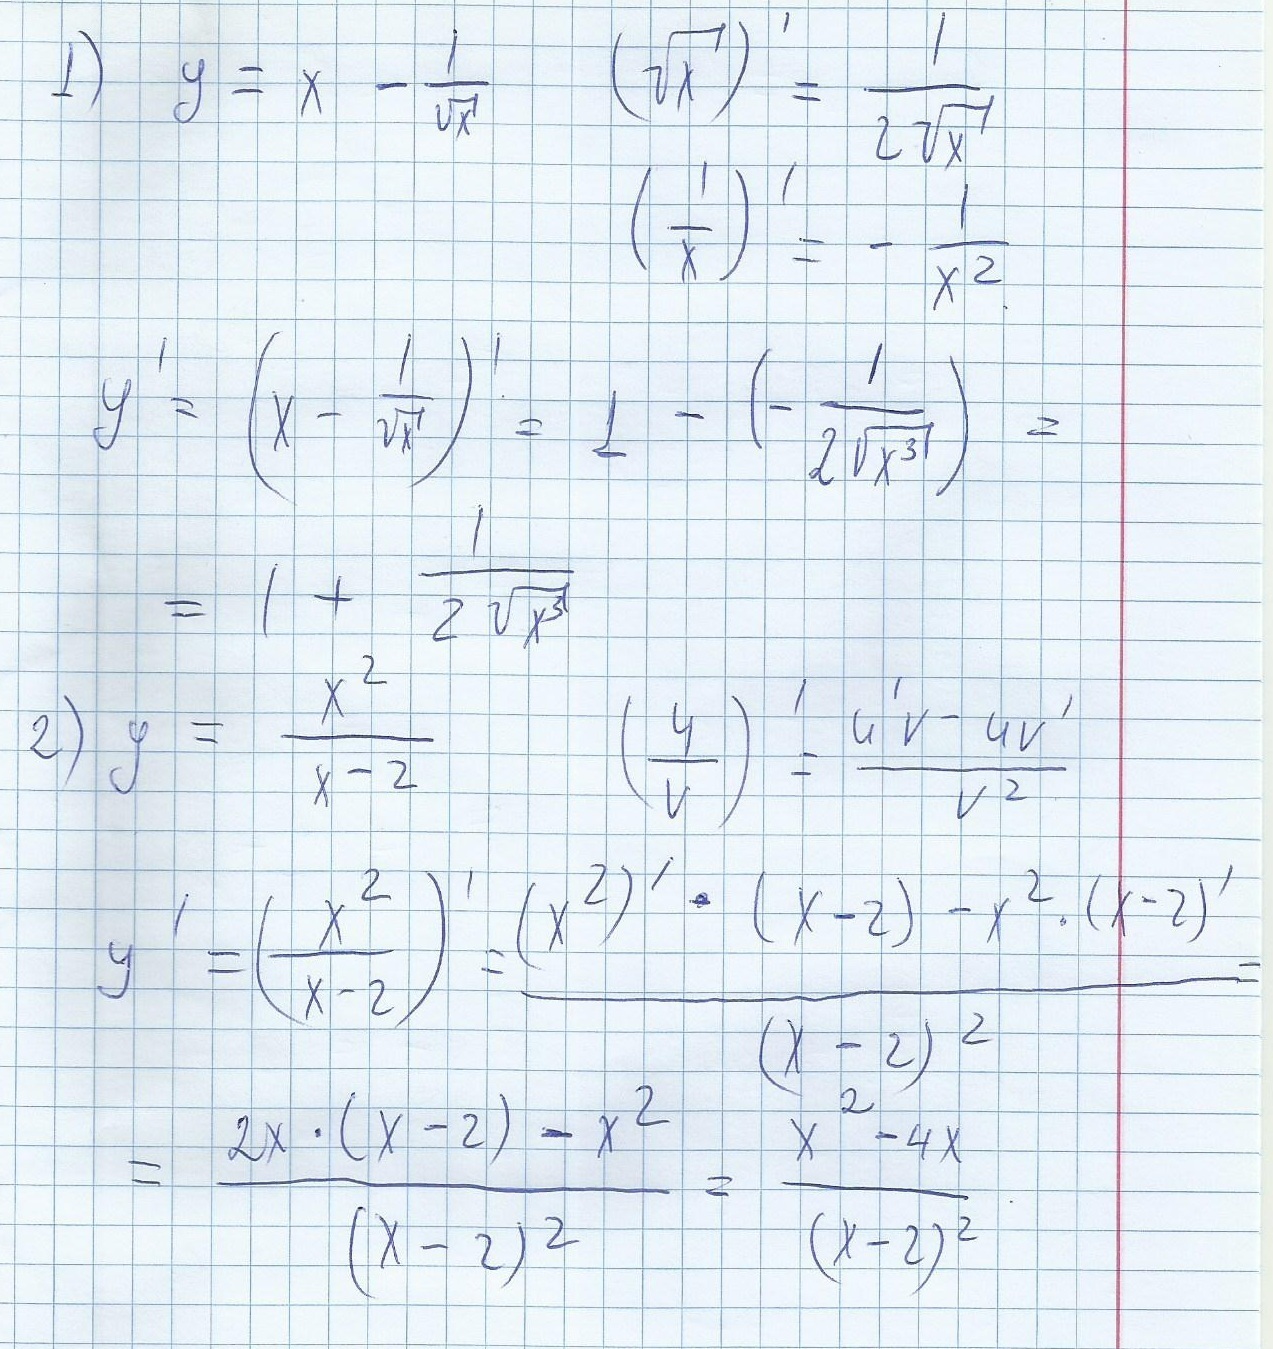 1) y = x - 1/√x (√x)' = 1/(2√x)
(1/x)' = - 1/x²
y' = (x - 1/√x)' = 1 - (- 1/(2√x³)) =
= 1 + 1/(2√x³)
2) y = x²/(x-2) (u/v)' = (u'v - uv')/v²
y' = (x²/(x-2))' = ((x²)' · (x-2) - x² · (x-2)')/(x-2)² =
= (2x · (x-2) - x²)/(x-2)² = (x² - 4x)/(x-2)²